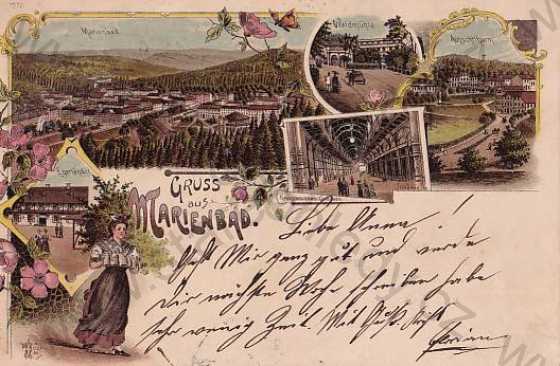 Marienbad
Waldmühle
Aussichtsturm
Egerländer
GRUSS
aus
MARIENBAD.
Liebe Anna!
Geht Mir ganz gut und werde
Dir nächste Woche schreiben habe
sehr wenig Zeit. Mit Gruß